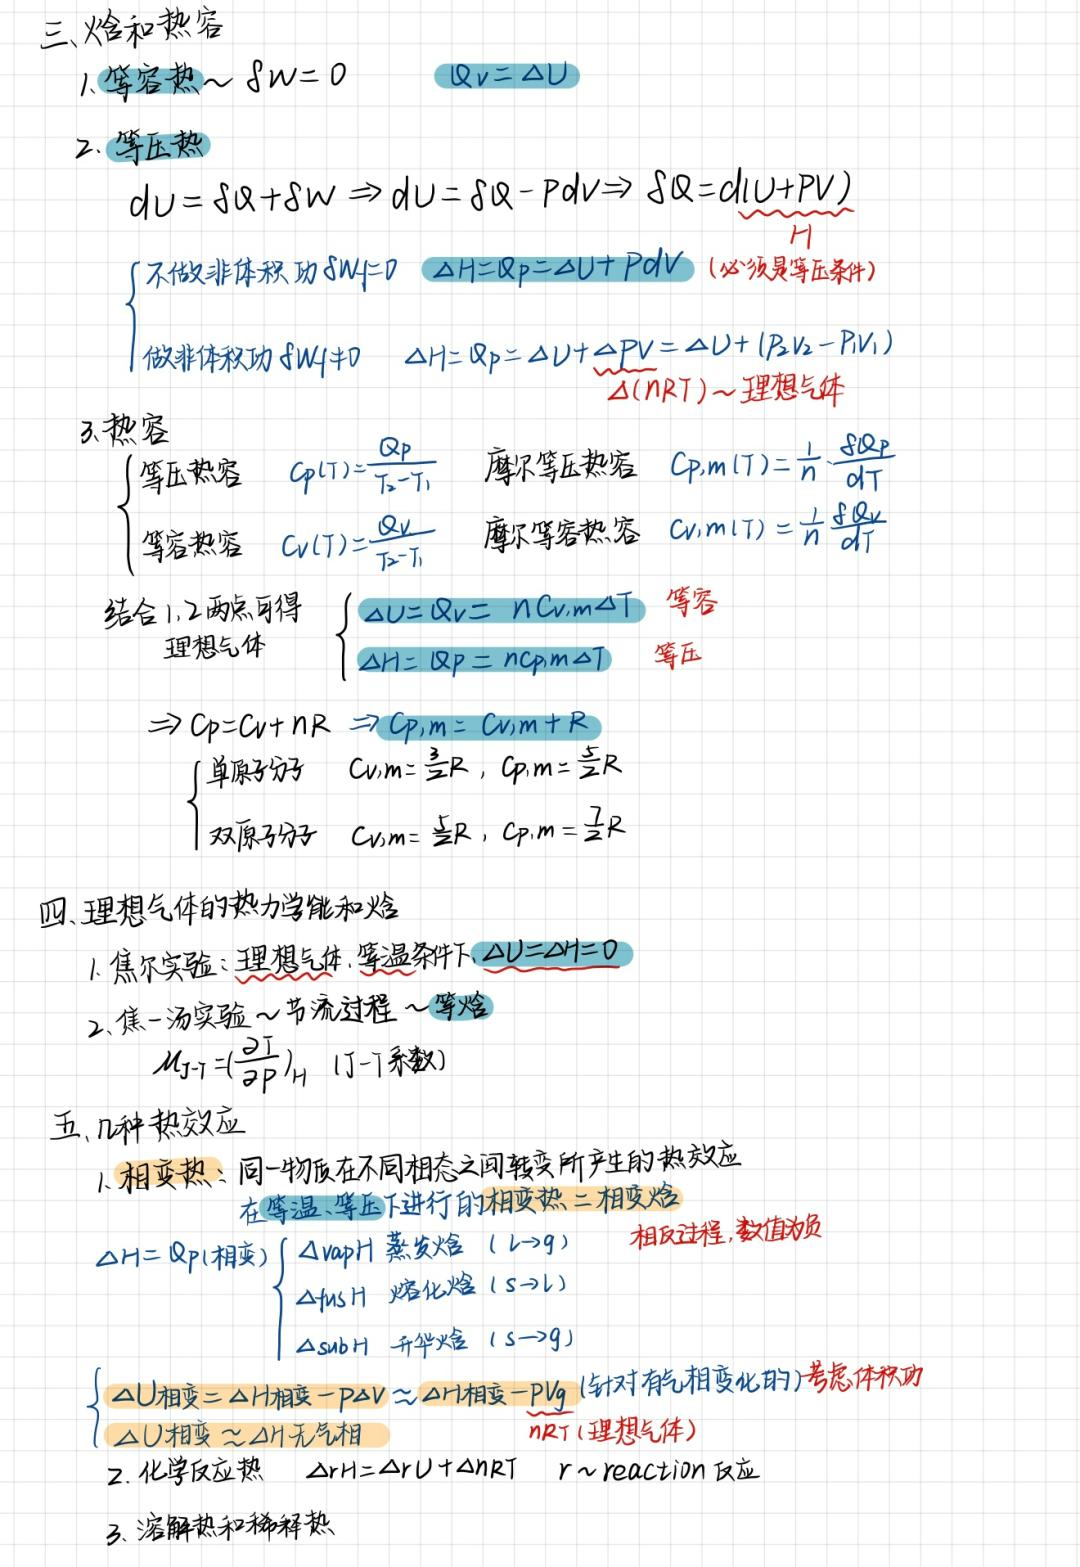 三、焓和热容
1、等容热～ δW=0 Qv=ΔU
2、等压热
dU=δQ+δW ⇒ dU=δQ-PdV ⇒ δQ=d(U+PV)
H
不做非体积功 δWf=0 ΔH=Qp=ΔU+PdV (必须是等压条件)
做非体积功 δWf≠0 ΔH=Qp=ΔU+ΔPV=ΔU+(P₂V₂-P₁V₁)
Δ(nRT)～理想气体
3、热容
等压热容 Cp(T)=Qp/(T₂-T₁) 摩尔等压热容 Cp,m(T)=1/n·δQp/dT
等容热容 Cv(T)=Qv/(T₂-T₁) 摩尔等容热容 Cv,m(T)=1/n δQv/dT
结合1、2两点可得 ΔU=Qv=nCv,mΔT 等容
理想气体 ΔH=Qp=nCp,mΔT 等压
⇒ Cp=Cv+nR ⇒ Cp,m=Cv,m+R
单原子分子 Cv,m=3/2R, Cp,m=5/2R
双原子分子 Cv,m=5/2R, Cp,m=7/2R
四、理想气体的热力学能和焓
1、焦尔实验：理想气体、等温条件下、ΔU=ΔH=0
2、焦—汤实验～节流过程～等焓
μJ-T=(∂T/∂P)H (J-T系数)
五、几种热效应
1、相变热：同一物质在不同相态之间转变所产生的热效应
在等温、等压下进行的相变热=相变焓
相反过程，数值为负
ΔH=Qp(相变) ΔvapH 蒸发焓 (l→g)
ΔfusH 熔化焓 (s→l)
ΔsubH 升华焓 (s→g)
ΔU相变=ΔH相变-pΔV≈ΔH相变-pVg (针对有气相变化的) 考虑体积功
ΔU相变≈ΔH无气相 nRT (理想气体)
2、化学反应热 ΔrH=ΔrU+ΔnRT r～reaction 反应
3、溶解热和稀释热